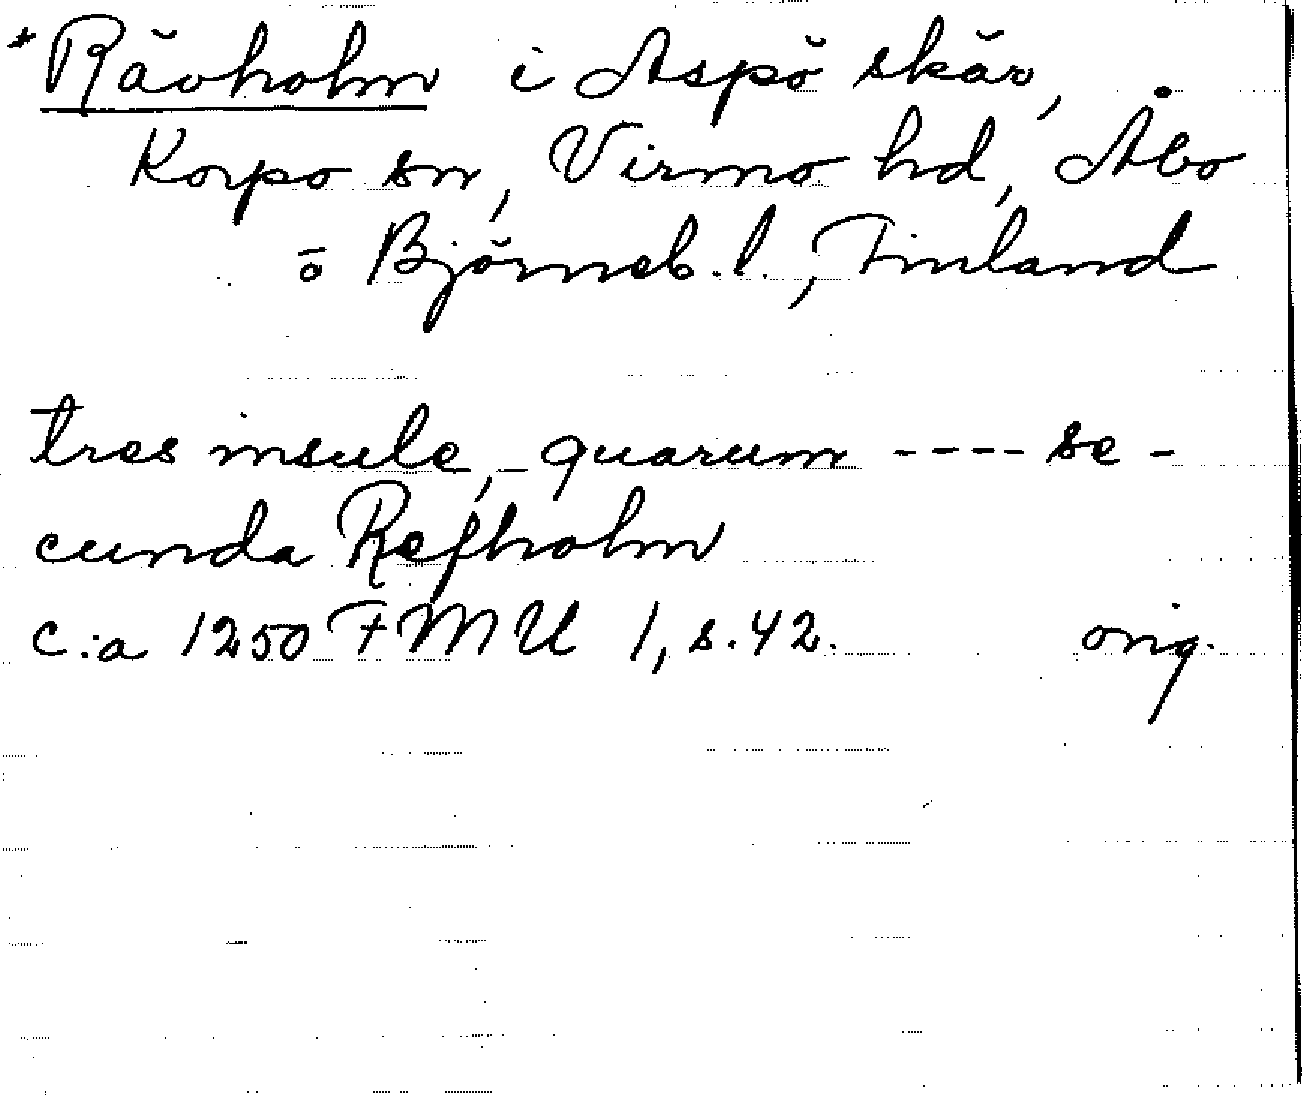 * Rävholm i Aspö skär,
Korpo sn, Virmo hd, Åbo
o Björneb. l., Finland
tres insule, quarum ---- se-
cunda Refholm
c:a 1250 FMU 1, s. 42. orig.